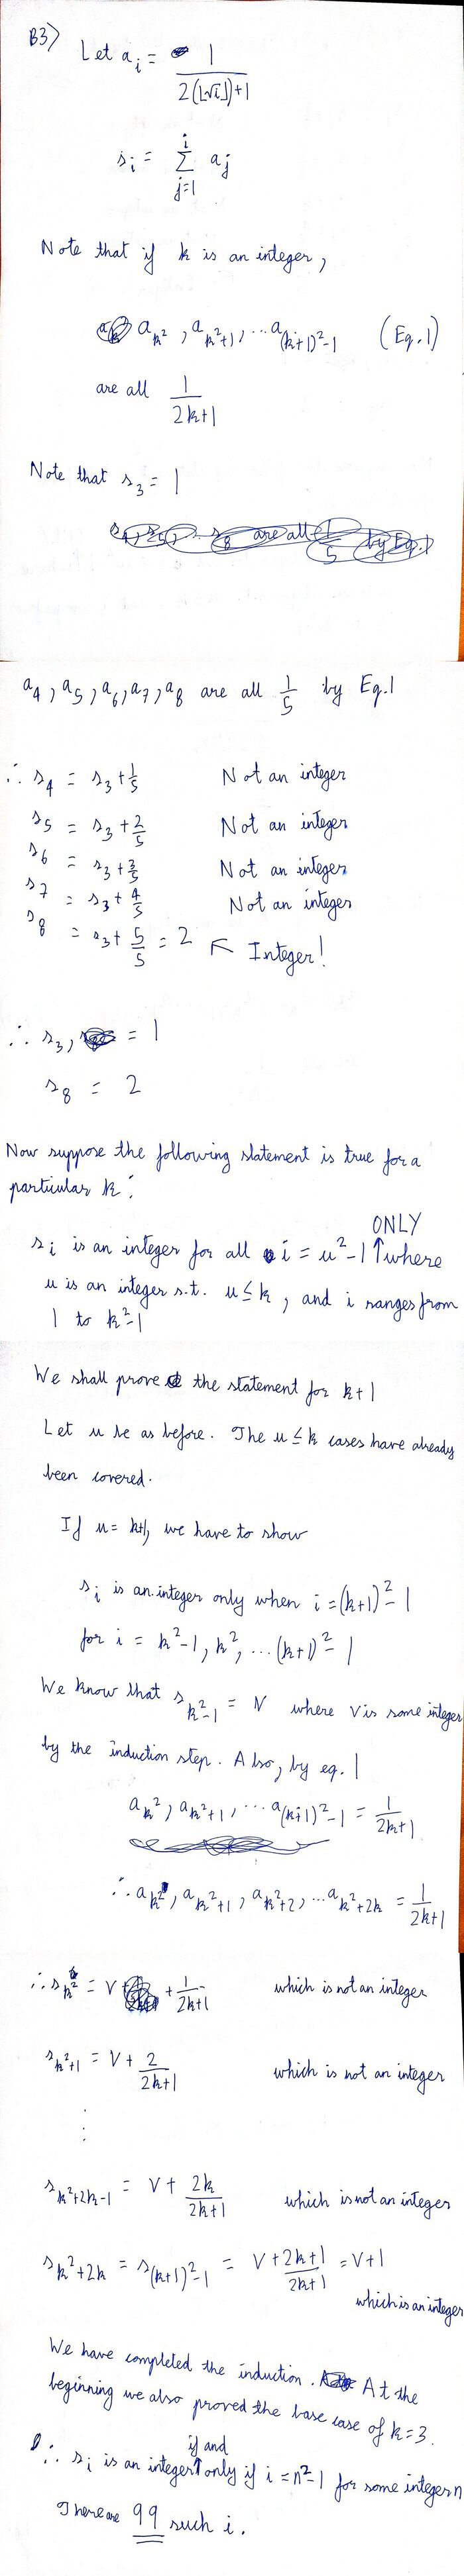 B3) Let a_i = 1 / (2(⌊√i⌋)+1)
s_i = Σ_{j=1}^{i} a_j
Note that if k is an integer,
a_{k²}, a_{k²+1}, ... a_{(k+1)²-1} (Eq. 1)
are all 1/(2k+1)
Note that s_3 = 1
s_4, s_5, ... s_8 are all 1/5 by Eq. 1
a_4, a_5, a_6, a_7, a_8 are all 1/5 by Eq. 1
∴ s_4 = s_3 + 1/5 Not an integer
s_5 = s_3 + 2/5 Not an integer
s_6 = s_3 + 3/5 Not an integer
s_7 = s_3 + 4/5 Not an integer
s_8 = s_3 + 5/5 = 2 ↖ Integer!
∴ s_3, = 1
s_8 = 2
Now suppose the following statement is true for a
particular k:
ONLY
s_i is an integer for all i = u²-1 ↑ where
u is an integer s.t. u ≤ k, and i ranges from
1 to k²-1
We shall prove the statement for k+1
Let u be as before. The u ≤ k cases have already
been covered.
If u = k+1, we have to show
s_i is an integer only when i = (k+1)²-1
for i = k²-1, k², ... (k+1)²-1
We know that s_{k²-1} = V where V is some integer
by the induction step. Also, by eq. 1
a_{k²}, a_{k²+1}, ... a_{(k+1)²-1} = 1/(2k+1)
∴ a_{k²}, a_{k²+1}, a_{k²+2}, ... a_{k²+2k} = 1/(2k+1)
∴ s_{k²} = V + 1/(2k+1) which is not an integer
s_{k²+1} = V + 2/(2k+1) which is not an integer
⋮
s_{k²+2k-1} = V + 2k/(2k+1) which is not an integer
s_{k²+2k} = s_{(k+1)²-1} = V + (2k+1)/(2k+1) = V+1
which is an integer
We have completed the induction. At the
beginning we also proved the base case of k=3.
if and
∴ s_i is an integer ↑ only if i = n²-1 for some integer n
There are 99 such i.